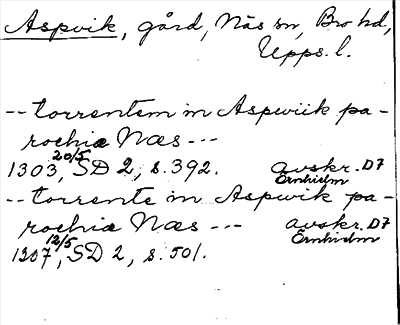 Aspvik, gård, Näs sn, Bro hd,
Upps. l.
-- torrentem in Aspwiik pa-
rochia Næs ---
1303 20/5, SD 2, s. 392. avskr. D7
Örnhielm
-- torrente in Aspwik pa-
rochia Næs --- avskr. D7
Örnhielm
1307 12/5, SD 2, s. 501.